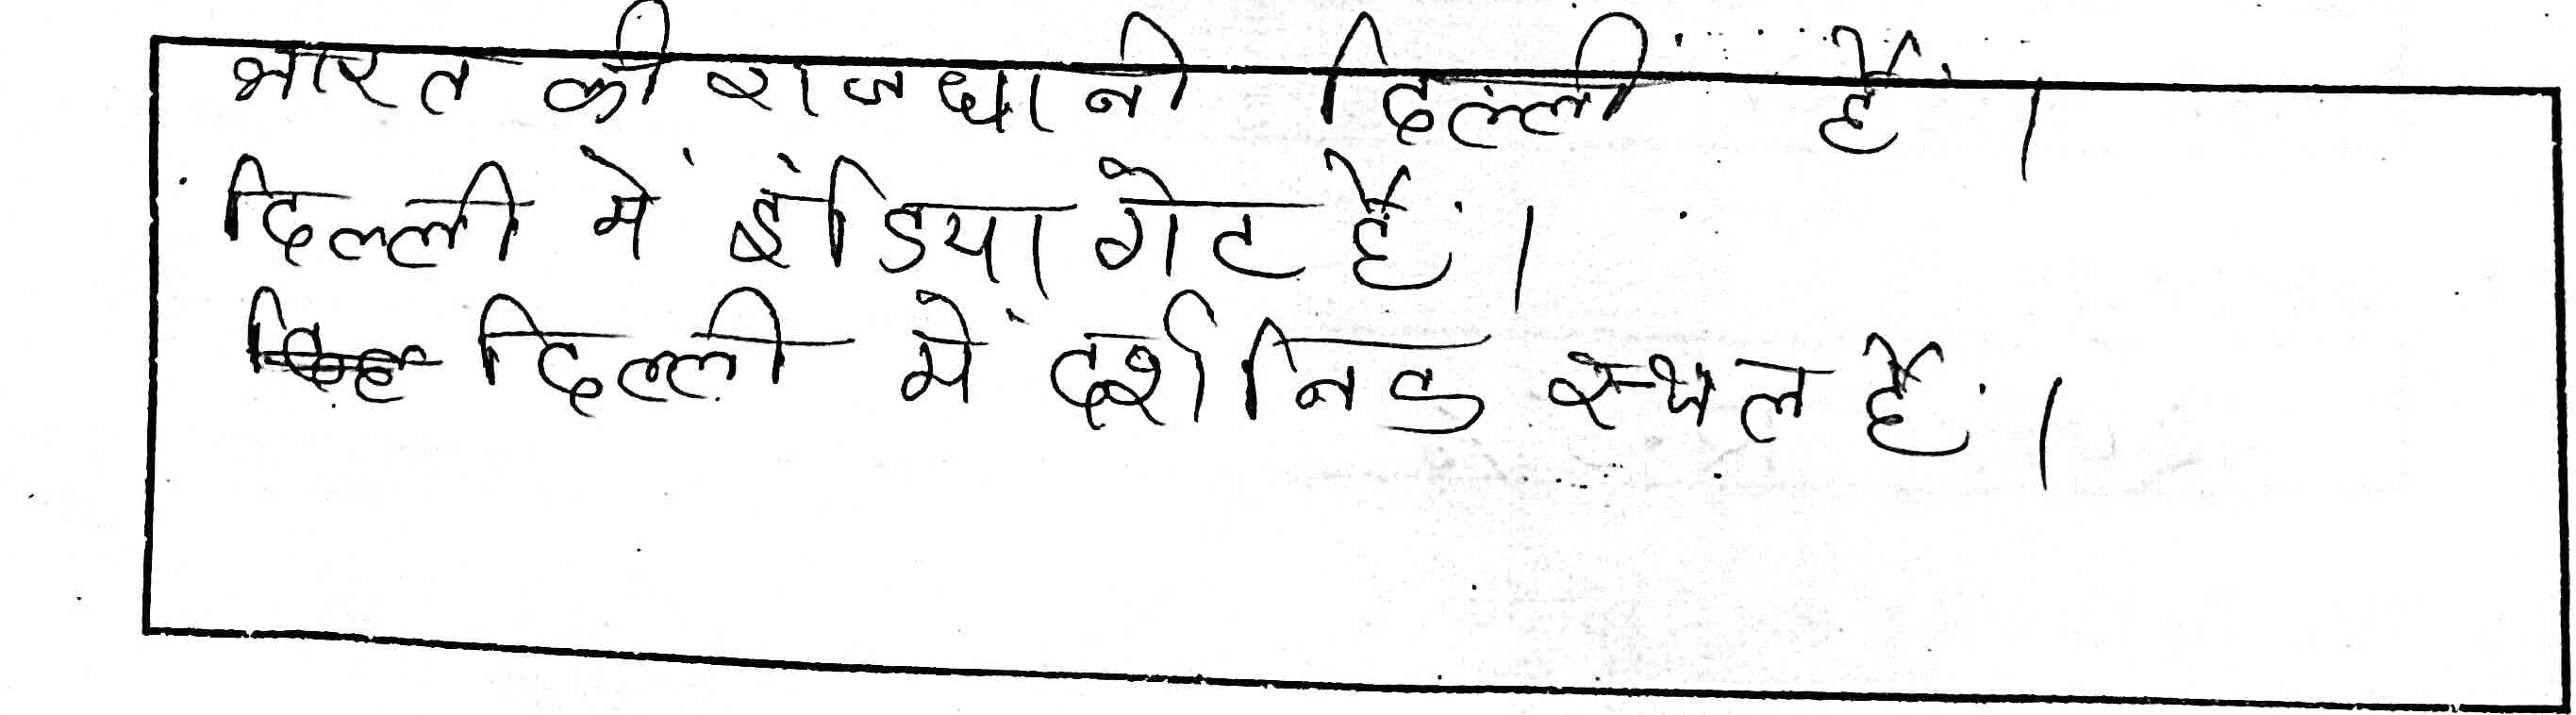 भारत की राजधानी दिल्ली हैं।
दिल्ली में इंडिया गेट हैं।
दिल्ली में दर्शनिड स्थल हैं।